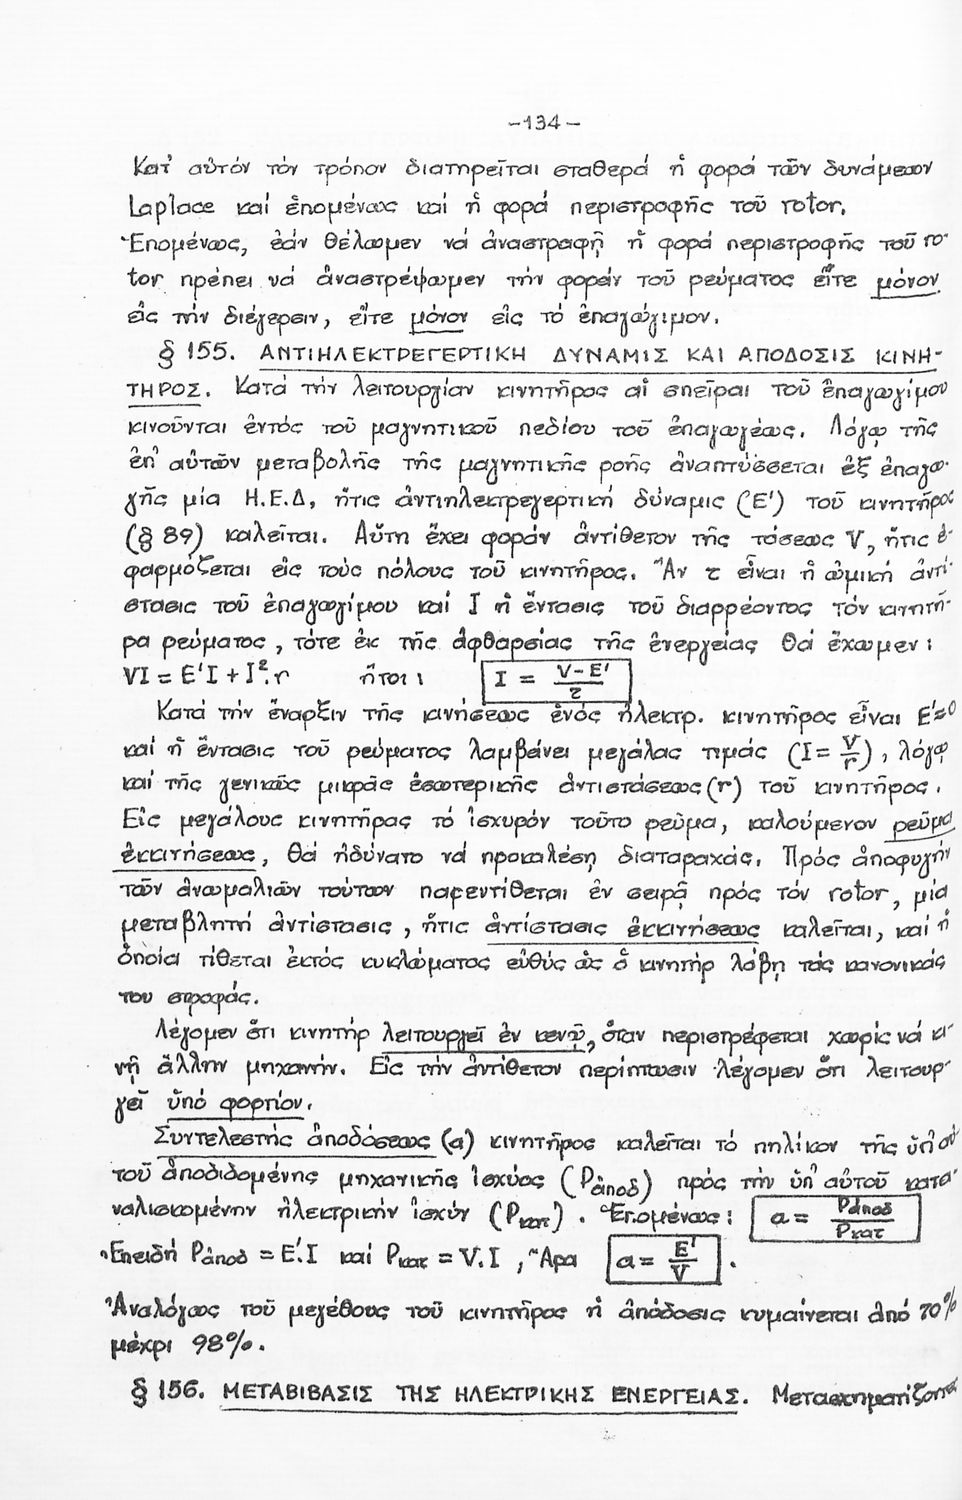 -134-
Κατ' αὐτόν τόν τρόπον διατηρεῖται σταθερά ἡ φορά τῶν δυνάμεων
Laplace καί ἑπομένως καί ἡ φορά περιστροφῆς τοῦ rotor.
Ἑπομένως, ἐάν θέλωμεν νά ἀναστραφῇ ἡ φορά περιστροφῆς τοῦ ro-
tor πρέπει νά ἀναστρέψωμεν τήν φοράν τοῦ ρεύματος εἴτε μόνον
εἰς τήν διέγερσιν, εἴτε μόνον εἰς τό ἐπαγώγιμον.
§ 155. ΑΝΤΙΗΛΕΚΤΡΕΓΕΡΤΙΚΗ ΔΥΝΑΜΙΣ ΚΑΙ ΑΠΟΔΟΣΙΣ ΚΙΝΗ-
ΤΗΡΟΣ. Κατά τήν λειτουργίαν κινητῆρος αἱ σπεῖραι τοῦ ἐπαγωγίμου
κινοῦνται ἐντός τοῦ μαγνητικοῦ πεδίου τοῦ ἐπαγωγέως. Λόγῳ τῆς
ἐπ' αὐτῶν μεταβολῆς τῆς μαγνητικῆς ροῆς ἀναπτύσσεται ἐξ ἐπαγω-
γῆς μία Η.Ε.Δ, ἥτις ἀντιηλεκτρεγερτική δύναμις (Ε') τοῦ κινητῆρος
(§ 89) καλεῖται. Αὕτη ἔχει φοράν ἀντίθετον τῆς τάσεως V, ἥτις ἐ-
φαρμόζεται εἰς τούς πόλους τοῦ κινητῆρος. Ἄν r εἶναι ἡ ὠμική ἀντί-
στασις τοῦ ἐπαγωγίμου καί I ἡ ἔντασις τοῦ διαρρέοντος τόν κινητῆ-
ρα ρεύματος, τότε ἐκ τῆς ἀφθαρσίας τῆς ἐνεργείας θά ἔχωμεν:
VI = E'I + I².r ἤτοι: I = V-E'/r
Κατά τήν ἔναρξιν τῆς κινήσεως ἑνός ἠλεκτρ. κινητῆρος εἶναι E'=0
καί ἡ ἔντασις τοῦ ρεύματος λαμβάνει μεγάλας τιμάς (I= V/r), λόγῳ
καί τῆς γενικῶς μικρᾶς ἐσωτερικῆς ἀντιστάσεως (r) τοῦ κινητῆρος.
Εἰς μεγάλους κινητῆρας τό ἰσχυρόν τοῦτο ρεῦμα, καλούμενον ρεῦμα
ἐκκινήσεως, θά ἠδύνατο νά προκαλέσῃ διαταραχάς. Πρός ἀποφυγήν
τῶν ἀνωμαλιῶν τούτων παρεντίθεται ἐν σειρᾷ πρός τόν rotor, μία
μεταβλητή ἀντίστασις, ἥτις ἀντίστασις ἐκκινήσεως καλεῖται, καί ἡ
ὁποία τίθεται ἐκτός κυκλώματος εὐθύς ὡς ὁ κινητήρ λάβῃ τάς κανονικάς
του στροφάς.
Λέγομεν ὅτι κινητήρ λειτουργεῖ ἐν κενῷ, ὅταν περιστρέφεται χωρίς νά κι-
νῇ ἄλλην μηχανήν. Εἰς τήν ἀντίθετον περίπτωσιν λέγομεν ὅτι λειτουρ-
γεῖ ὑπό φορτίον.
Συντελεστής ἀποδόσεως (α) κινητῆρος καλεῖται τό πηλίκον τῆς ὑπ' αὐ-
τοῦ ἀποδιδομένης μηχανικῆς ἰσχύος (Ρἀποδ) πρός τήν ὑπ' αὐτοῦ κατα-
ναλισκομένην ἠλεκτρικήν ἰσχύν (Ρκατ). Ἑπομένως: α = Ρἀποδ/Ρκατ
Ἐπειδή Ρἀποδ = Ε'.Ι καί Ρκατ = V.I, Ἄρα α = E'/V .
Ἀναλόγως τοῦ μεγέθους τοῦ κινητῆρος ἡ ἀπόδοσις κυμαίνεται ἀπό 70%
μέχρι 98%.
§ 156. ΜΕΤΑΒΙΒΑΣΙΣ ΤΗΣ ΗΛΕΚΤΡΙΚΗΣ ΕΝΕΡΓΕΙΑΣ. Μετασχηματίζοντες